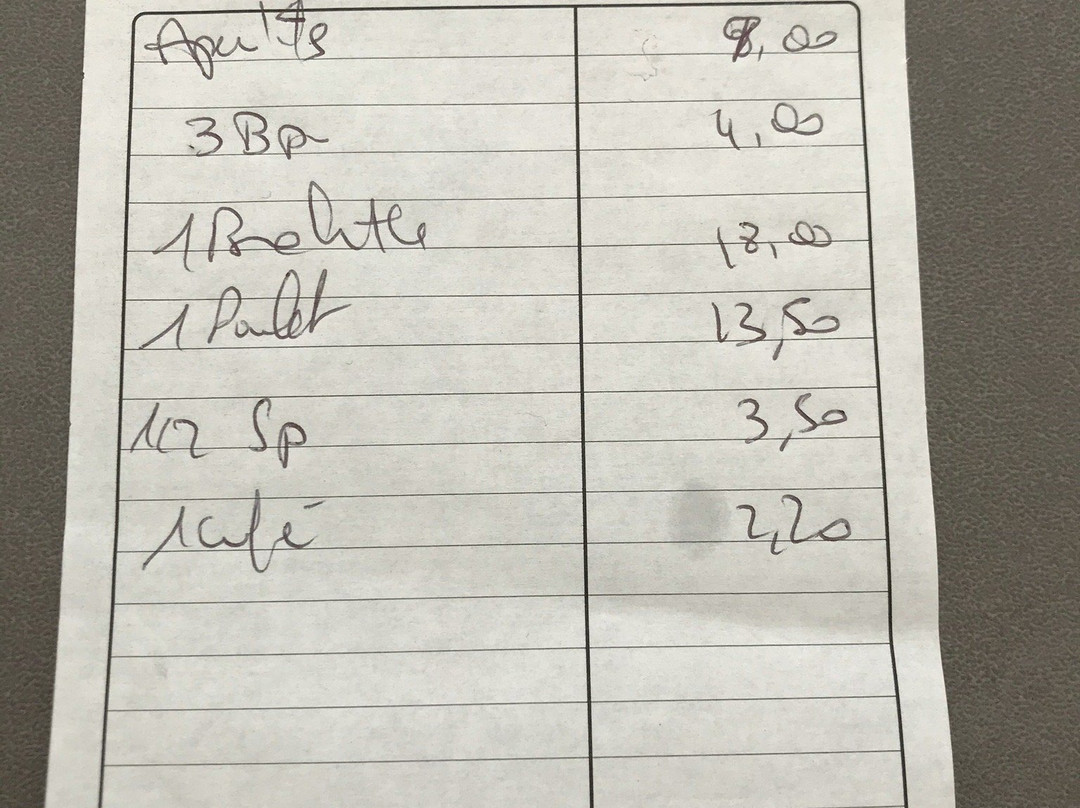 Apéritifs 8,00
3 Bp 4,00
1 Brochette 18,00
1 Poulet 13,50
1/2 Sp 3,50
1 Café 2,20